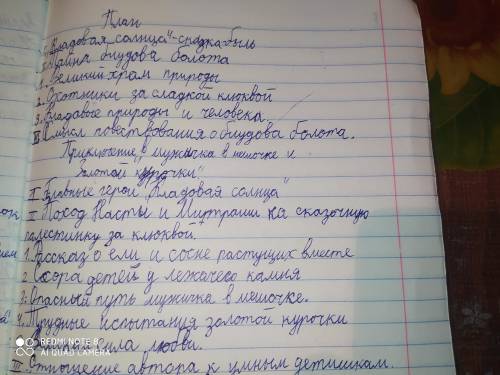 План
"Кладовая солнца"-сказка быль
Тайна блудова болота
1. Великий храм природы
2. Охотники за сладкой клюквой
3. Кладовые природы и человека.
III Смысл повествования о блудова болота.
Приключение, "мужичка в мешочке и
золотой курочки"
I Главные герои "Кладовая солнца"
II Поход Насты и Митраши на сказочную
палестинку за клюквой
1. Рассказ о ели и сосне растущих вместе
2. Ссора детей у лежачево камня
3. Опасный путь мужичка в мешочке.
4. Трудные испытания золотой курочки
сила любви.
III Отношение автора к умным детишкам.
REDMI NOTE 8
AI QUAD CAMERA